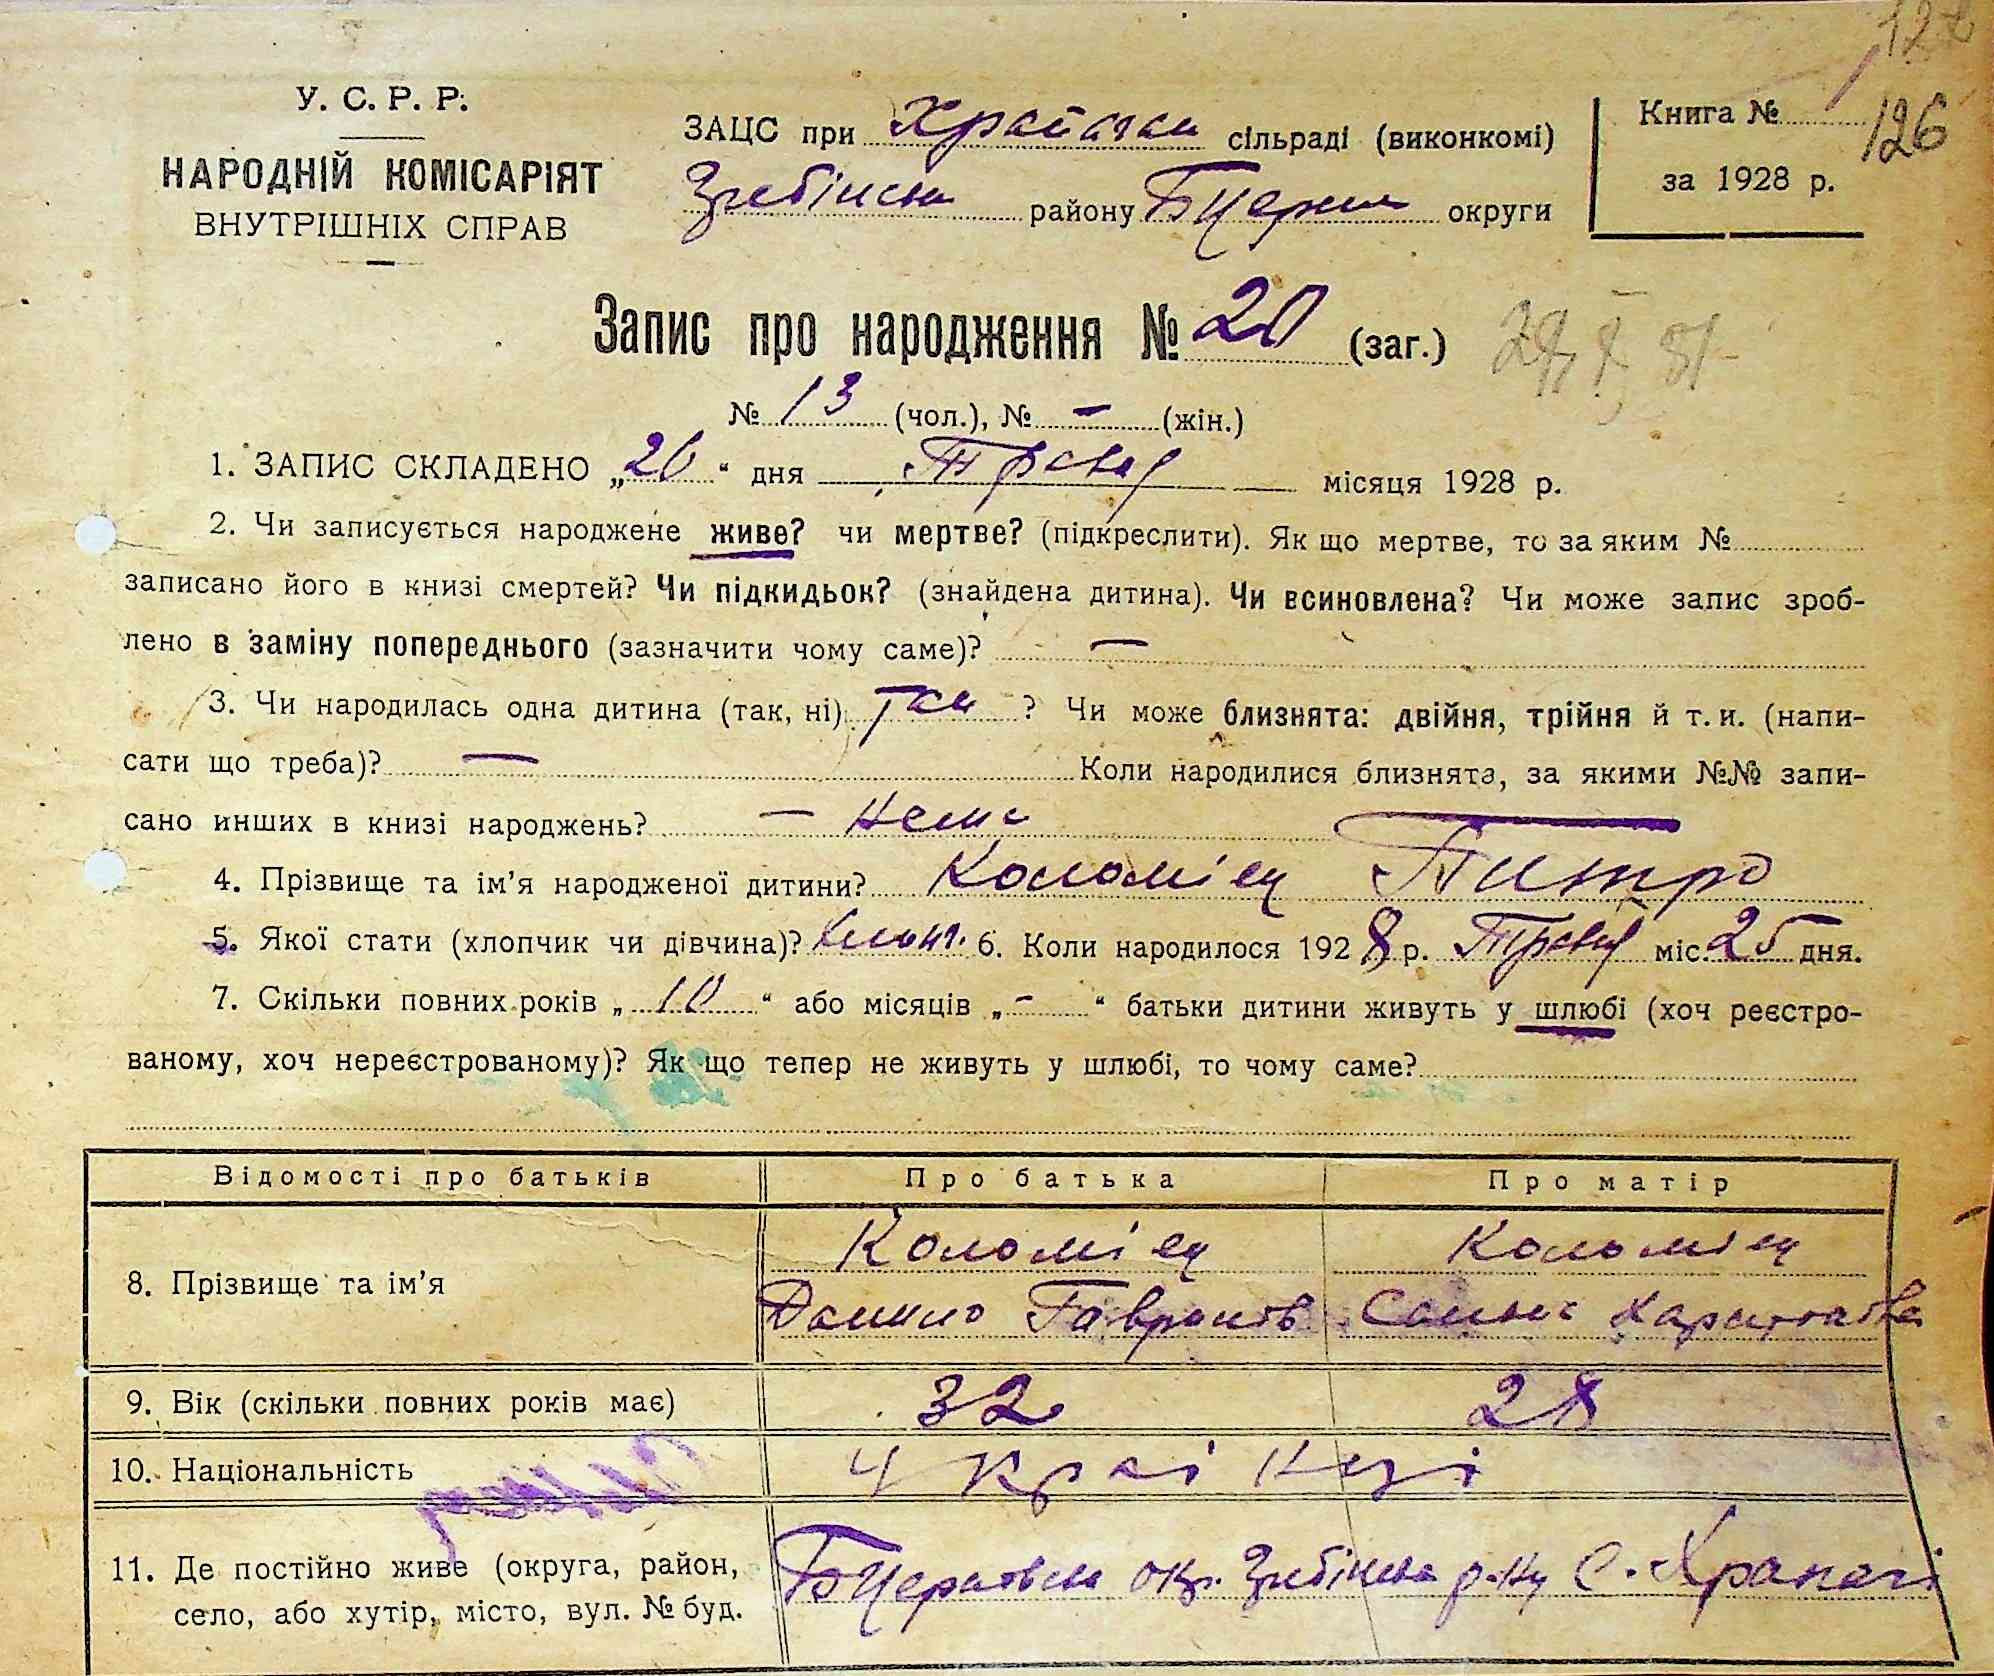 126
У. С. Р. Р.
НАРОДНІЙ КОМІСАРІЯТ
ВНУТРІШНІХ СПРАВ
ЗАЦС при сільраді (виконкомі)
району БЦеркв округи
Книга №
126
за 1928 р.
Запис про народження № 20 (заг.)
№ 13 (чол.), № – (жін.)
1. ЗАПИС СКЛАДЕНО „26“ дня Травня місяця 1928 р.
2. Чи записується народжене живе? чи мертве? (підкреслити). Як що мертве, то за яким №
записано його в книзі смертей? Чи підкидьок? (знайдена дитина). Чи всиновлена? Чи може запис зроб-
лено в заміну попереднього (зазначити чому саме)? —
3. Чи народилась одна дитина (так, ні) так ? Чи може близнята: двійня, трійня й т. и. (напи-
сати що треба)? — Коли народилися близнята, за якими №№ запи-
сано инших в книзі народжень? — Нема
4. Прізвище та ім’я народженої дитини? Коломієц Питро
5. Якої стати (хлопчик чи дівчина)? Хлопч. 6. Коли народилося 1928 р. Травня міс. 25 дня.
7. Скільки повних років „10“ або місяців „-“ батьки дитини живуть у шлюбі (хоч реєстро-
ваному, хоч нереєстрованому)? Як що тепер не живуть у шлюбі, то чому саме?
Відомості про батьків Про батька Про матір
8. Прізвище та ім’я Коломієц Коломієц
Данило Гавронов Харитонова
9. Вік (скільки повних років має) 32 28
10. Національність Українці
11. Де постійно живе (округа, район, БЦерковська окр. р-ну С. Храпачі
село, або хутір, місто, вул. № буд.